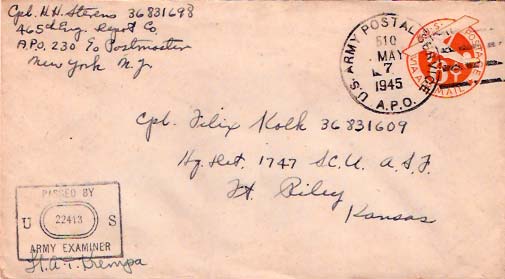 Cpl. H.H. Stevens 36831698
465th Eng. Depot Co.
A.P.O. 230 c/o Postmaster
New York N.Y.
U.S. ARMY POSTAL SERVICE
510
MAY
7
1945
A.P.O.
U.S. POSTAGE
VIA AIR MAIL
Cpl. Felix Kolk 36831609
Hq. Det. 1747 S.C.U. A.S.F.
Ft. Riley
Kansas
PASSED BY
U 22413 S
ARMY EXAMINER
Lt. A.T. Krempa